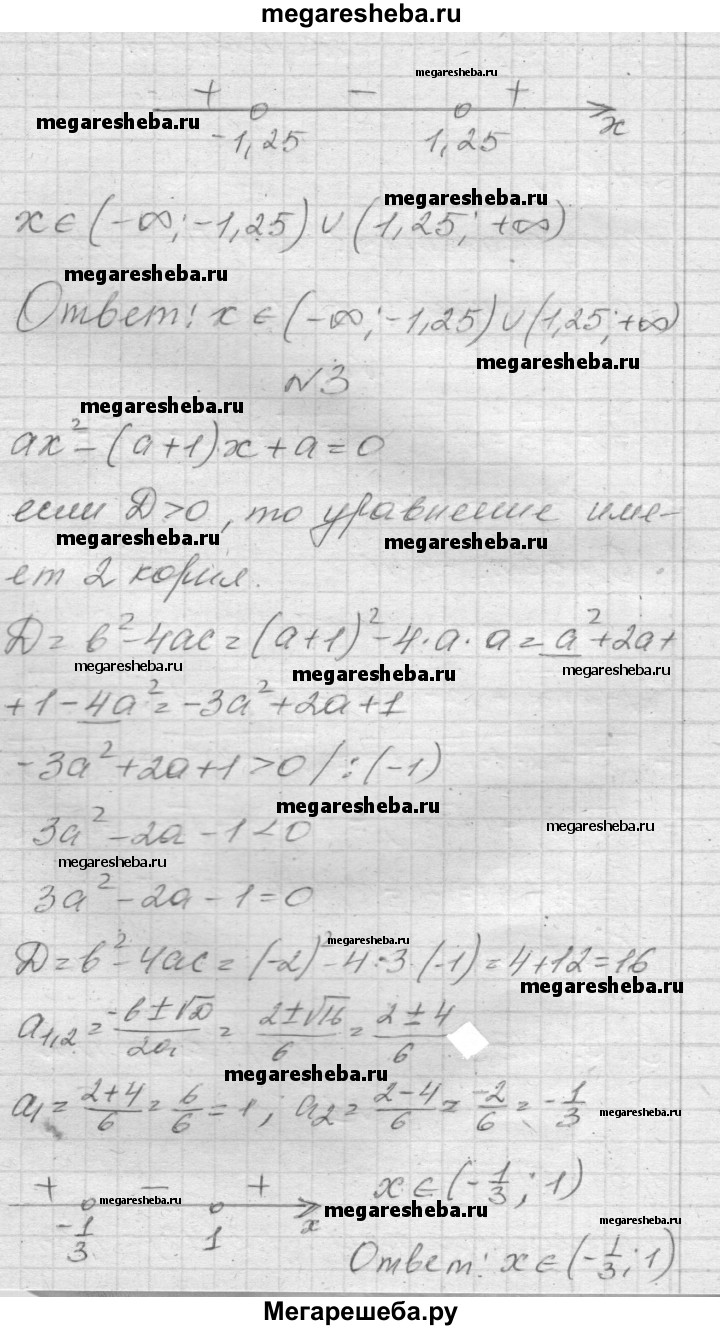 megaresheba.ru
megaresheba.ru
+ − +
megaresheba.ru
-1,25 1,25 x
megaresheba.ru
x ∈ (-∞; -1,25) ∪ (1,25; +∞)
megaresheba.ru
Ответ: x ∈ (-∞; -1,25) ∪ (1,25; +∞)
megaresheba.ru
№3
megaresheba.ru
ax² - (a+1)x + a = 0
если D > 0, то уравнение име-
megaresheba.ru megaresheba.ru
ет 2 корня.
D = b² - 4ac = (a+1)² - 4·a·a = a² + 2a +
megaresheba.ru megaresheba.ru megaresheba.ru
+ 1 - 4a² = -3a² + 2a + 1
-3a² + 2a + 1 > 0 / : (-1)
megaresheba.ru
3a² - 2a - 1 < 0 megaresheba.ru
megaresheba.ru
3a² - 2a - 1 = 0
megaresheba.ru
D = b² - 4ac = (-2)² - 4·3·(-1) = 4 + 12 = 16
megaresheba.ru
a₁,₂ = (-b ± √D)/2a = (2 ± √16)/6 = (2 ± 4)/6
megaresheba.ru
a₁ = (2+4)/6 = 6/6 = 1; a₂ = (2-4)/6 = -2/6 = -1/3
megaresheba.ru
+ − + x ∈ (-1/3; 1)
megaresheba.ru megaresheba.ru
-1/3 1 x
megaresheba.ru
Ответ: x ∈ (-1/3; 1)
Мегарешеба.ру